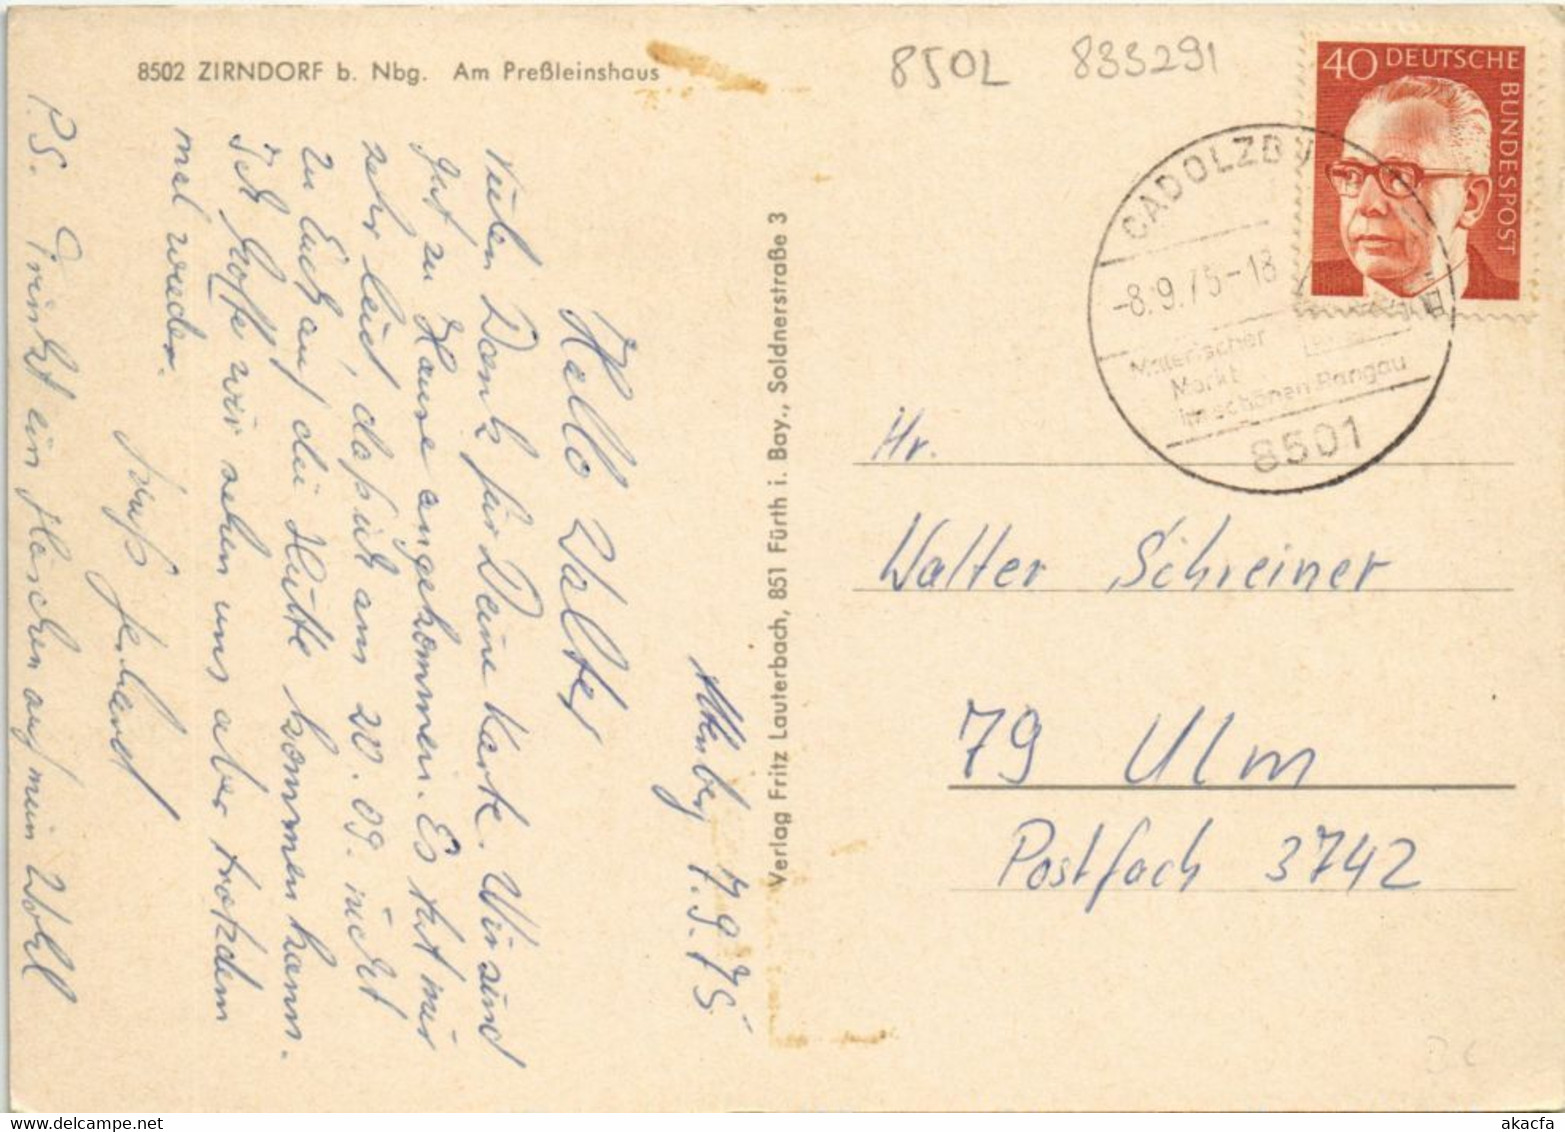 8502 ZIRNDORF b. Nbg. Am Preßleinshaus
8502 833291
40 DEUTSCHE
BUNDESPOST
CADOLZBU
-8.9.75-18
Malerischer
Markt
im schönen Rangau
8501
Altenberg 7.9.75
Hallo Walter
Vielen Dank für Deine Karte. Wir sind
gut zu Hause angekommen. Es tut mir
sehr leid, daß ich am 20.09. nicht
zu Euch auf die Hütte kommen kann.
Ich hoffe wir sehen uns aber trotzdem
mal wieder.
Gruß Gerhard
P.S. Trinkt ein Fläschen auf mein Wohl
Verlag Fritz Lauterbach, 851 Fürth i. Bay., Soldnerstraße 3
Hr.
Walter Schreiner
79 Ulm
Postfach 3742
www.delcampe.net
akacfa